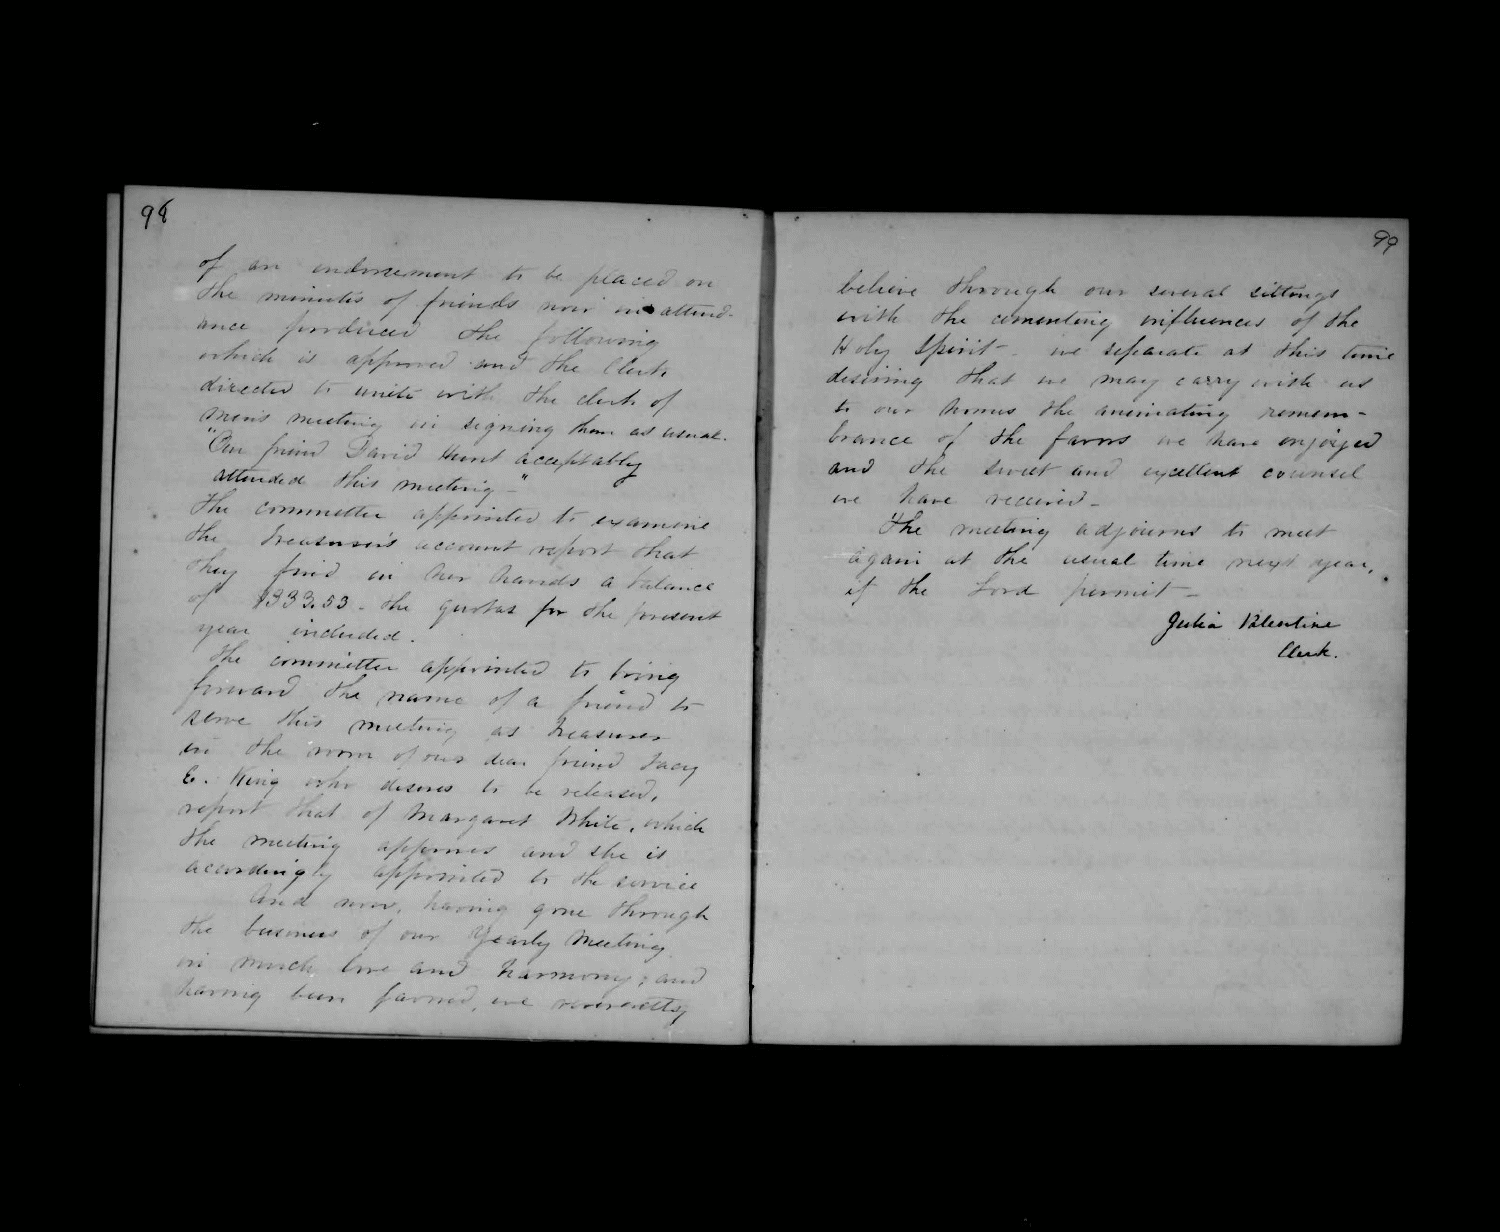 98
of an endorsement to be placed on
the minutes of friends now in attend-
ance produced the following
which is approved and the Clerk
directed to unite with the clerk of
men's meeting in signing them as usual.
"Our friend David Hunt acceptably
attended this meeting-"
The committee appointed to examine
the Treasurer's account report that
they find in her hands a balance
of $333.53 - the quotas for the present
year included.
The committee appointed to bring
forward the name of a friend to
serve this meeting as Treasurer
in the room of our dear friend
E. King who desires to be released,
report that of Margaret White, which
the meeting approves and she is
accordingly appointed to the service
And now, having gone through
the business of our Yearly Meeting
in much love and harmony, and
having been favored, we reverently
99
believe through our several sittings
with the cementing influences of the
Holy Spirit - we separate at this time
desiring that we may carry with us
to our homes the animating remem-
brance of the favors we have enjoyed
and the sweet and excellent counsel
we have received -
The meeting adjourns to meet
again at the usual time next year,
if the Lord permit -
Julia Valentine
Clerk.